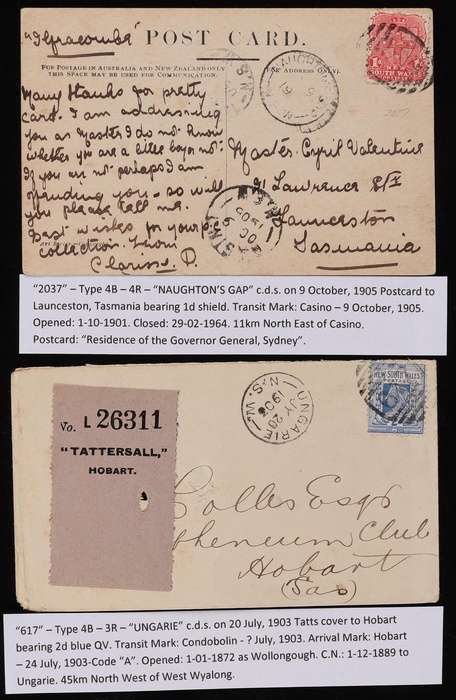 "Ilfracombe"
POST CARD.
FOR POSTAGE IN AUSTRALIA AND NEW ZEALAND ONLY
THIS SPACE MAY BE USED FOR COMMUNICATION.
(FOR ADDRESS ONLY)
Many thanks for pretty
card. I am addressing
you as Master I do not know
whether you are a little boy or not.
If you are not perhaps I am
offending you - so will
you please tell me.
Best wishes for your
collection. From
Clarisse D.
Master Cyril Valentine
91 Lawrence St
Launceston
Tasmania
SOUTH WALES
"2037" – Type 4B – 4R – "NAUGHTON'S GAP" c.d.s. on 9 October, 1905 Postcard to
Launceston, Tasmania bearing 1d shield. Transit Mark: Casino – 9 October, 1905.
Opened: 1-10-1901. Closed: 29-02-1964. 11km North East of Casino.
Postcard: "Residence of the Governor General, Sydney".
Vo. L 26311
"TATTERSALL,"
HOBART.
UNGARIE
JY 20
1903
N.S.W.
NEW SOUTH WALES
POSTAGE
Colles Esqr
heneum Club
Hobart
(Tas)
"617" – Type 4B – 3R – "UNGARIE" c.d.s. on 20 July, 1903 Tatts cover to Hobart
bearing 2d blue QV. Transit Mark: Condobolin - ? July, 1903. Arrival Mark: Hobart
– 24 July, 1903-Code "A". Opened: 1-01-1872 as Wollongough. C.N.: 1-12-1889 to
Ungarie. 45km North West of West Wyalong.